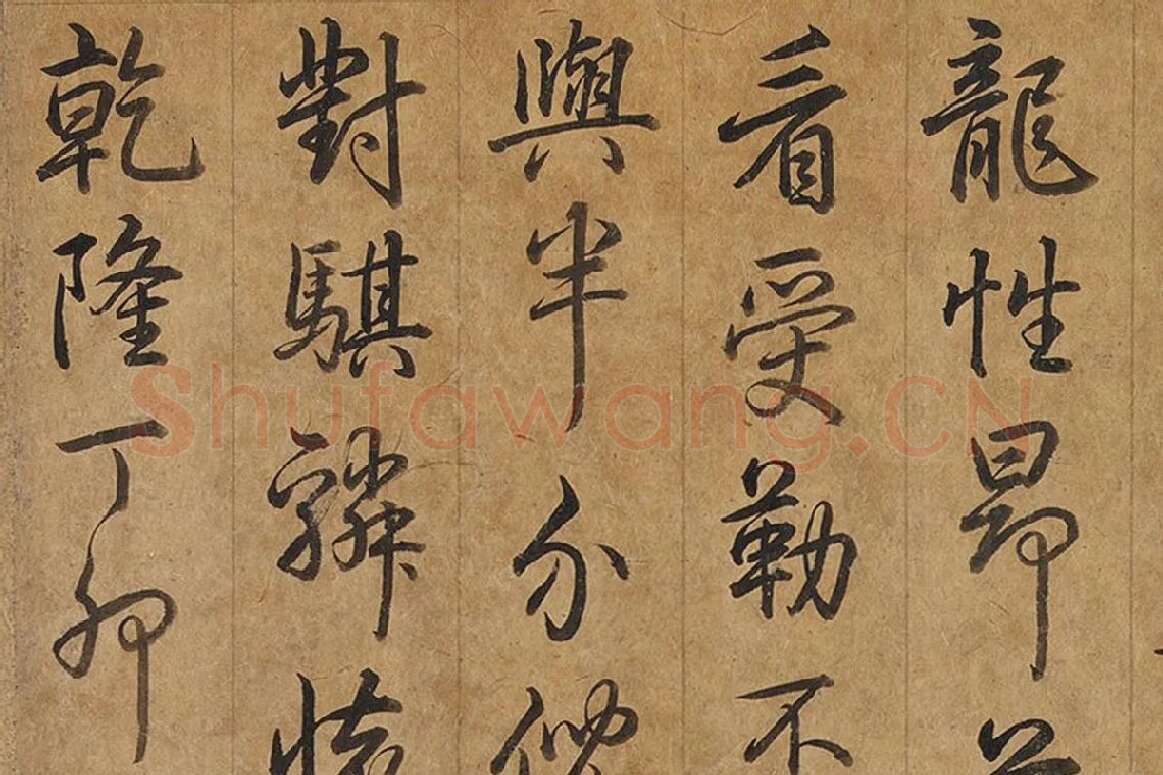 龍性昂
看受勒不
與半分
對騏驎
乾隆丁卯
Shufawang.CN